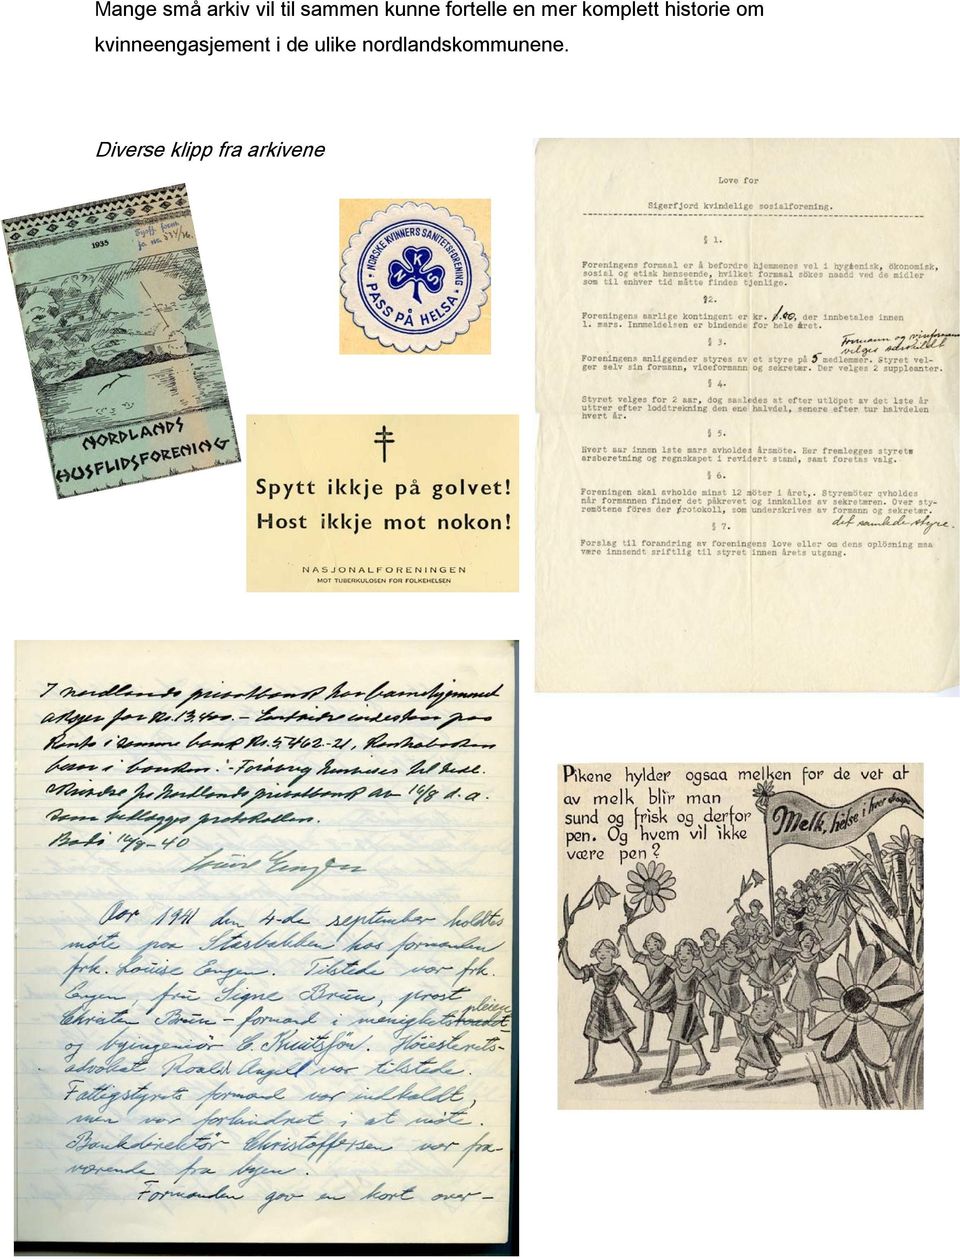 Mange små arkiv vil til sammen kunne fortelle en mer komplett historie om
kvinneengasjement i de ulike nordlandskommunene.
Diverse klipp fra arkivene
1935
NORDLANDS
HUSFLIDSFORENING
NORSKE KVINNERS SANITETSFORENING
N K S
PASS PÅ HELSA
Spytt ikkje på golvet!
Host ikkje mot nokon!
NASJONALFORENINGEN
MOT TUBERKULOSEN FOR FOLKEHELSEN
Love for
Sigerfjord kvindelige sosialforening.
§ 1.
Foreningens formaal er å befordre hjemmenes vel i hygienisk, ökonomisk,
sosial og etisk henseende, hvilket formaal sökes naadd ved de midler
som til enhver tid måtte findes tjenlige.
§2.
Foreningens aarlige kontingent er kr. 1.00, der innbetales innen
1. mars. Innmeldelsen er bindende for hele året.
§ 3.
Formann og viseformann
velges særskildt
Foreningens anliggender styres av et styre på 5 medlemmer. Styret vel-
ger selv sin formann, viceformann og sekretær. Der velges 2 suppleanter.
§ 4.
Styret velges for 2 aar, dog saaledes at efter utlöpet av det 1ste år
uttrer efter loddtrekning den ene halvdel, senere efter tur halvdelen
hvert år.
§ 5.
Hvert aar innen 1ste mars avholdes årsmöte. Her fremlegges styrets
arsberetning og regnskapet i revidert stand, samt foretas valg.
§ 6.
Foreningen skal avholde minst 12 möter i året,. Styremöter avholdes
når formannen finder det påkrevet og innkalles av sekretæren. Over sty-
remötene föres der protokoll, som underskrives av formann og sekretær.
det samlede styre.
§ 7.
Forslag til forandring av foreningens love eller om dens oplösning maa
være innsendt sriftlig til styret innen årets utgang.
I Nordlands privatbank har barnehjemmet
aksjer for Kr. 13,400.-
Konto i samme bank Kr. 5,462-21,
beror i banken.
Nordlands privatbank av 16/8 d.a.
som vedlegges protokollen.
Bodö 16/8-40
Louise Engen
Aar 1941 den 4-de september holdtes
möte paa Stæsbakken hos formanden
frk. Louise Engen. Tilstede var frk.
Engen, fru Signe Bruun, prost
Christen Bruun - formand i menighetspleien
og byingeniör C. Knutsjön. Höiesteretts-
advokat Roald Angell var tilstede.
Fattigstyrets formand var indkaldt,
men var forhindret i at möte.
Bankdirektör Christoffersen var fra-
værende fra byen.
Formanden gav en kort over-
Pikene hylder ogsaa melken for de vet at
av melk blir man
sund og frisk og derfor
pen. Og hvem vil ikke
være pen?
Melk, helse i hver draape